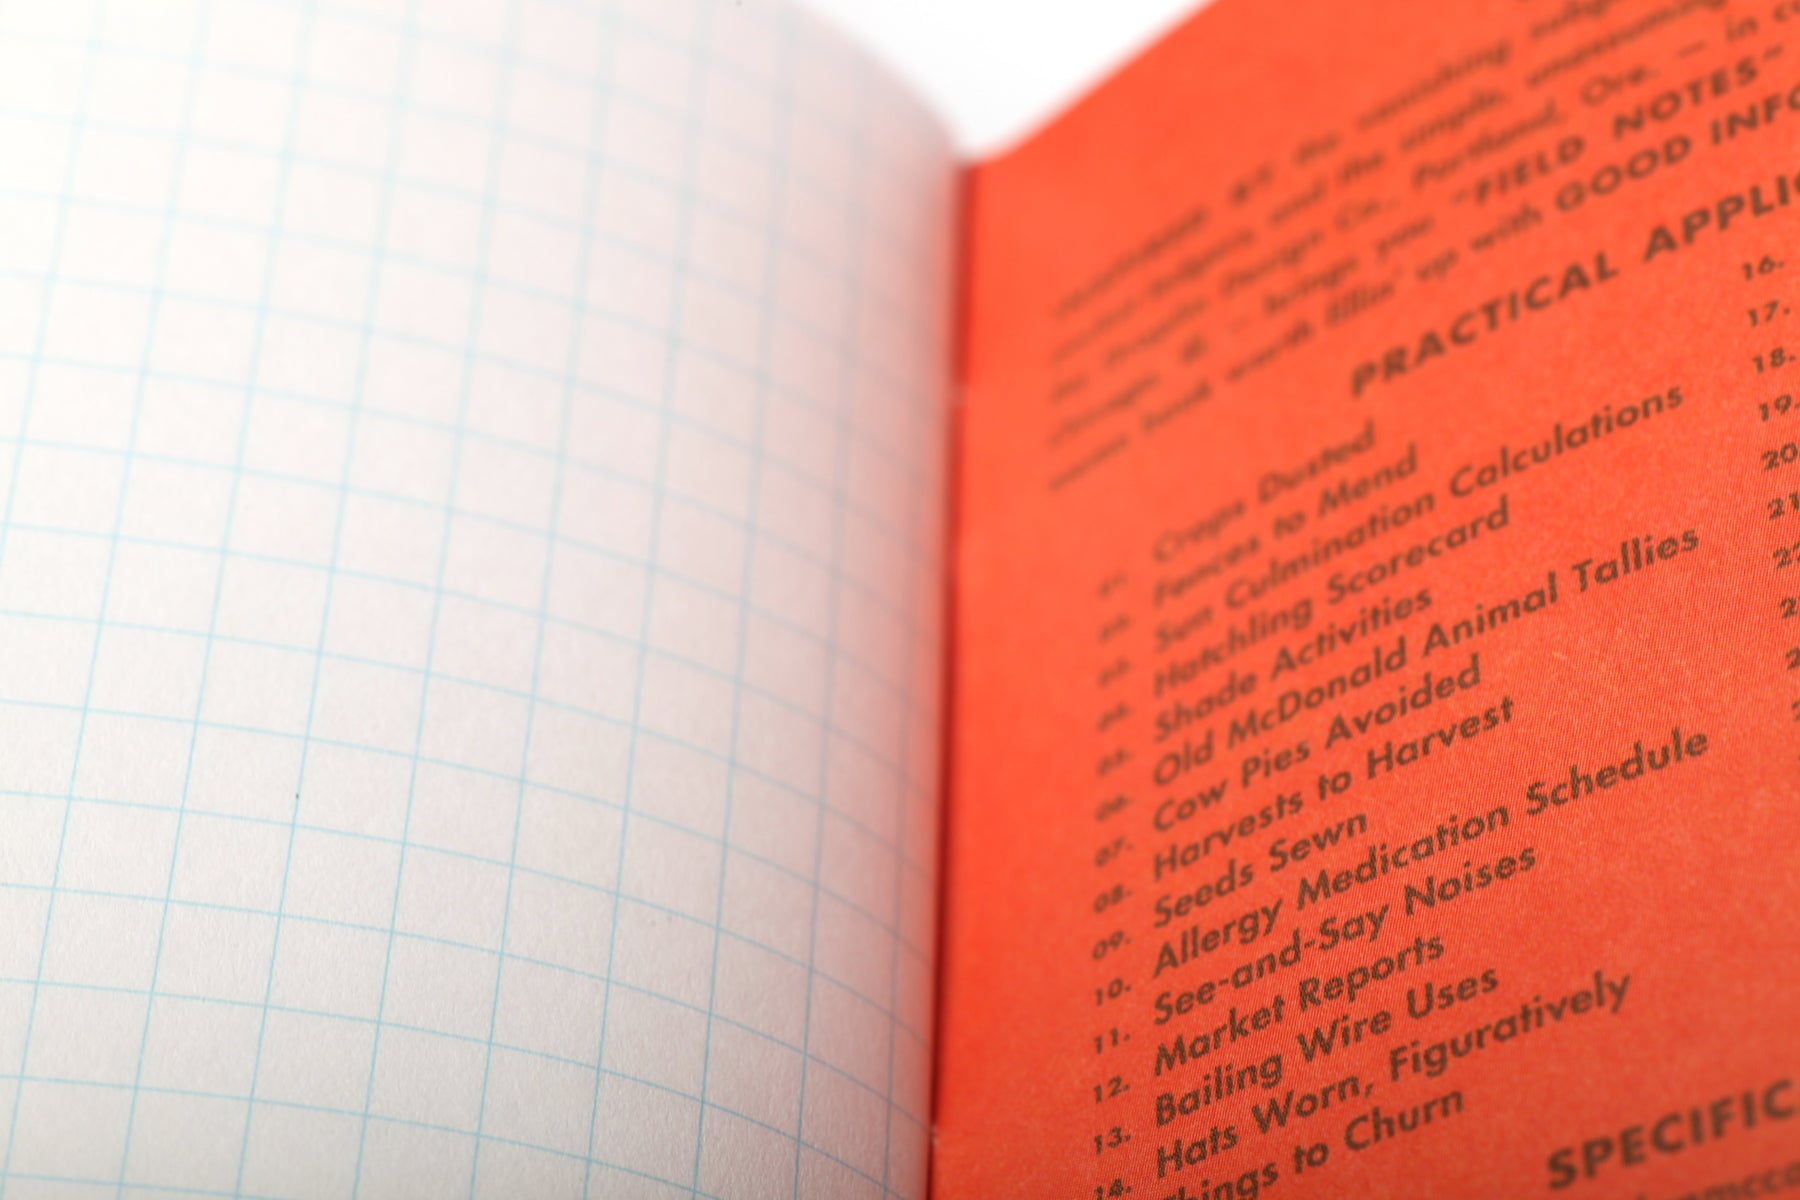 the vanishing subje
and the simple, unassuming
Design Co., Portland, Ore. — in co
— brings you "FIELD NOTES"
book worth fillin' up with GOOD INFO
PRACTICAL APPLIC
01. Crops Dusted
02. Fences to Mend
03. Sun Culmination Calculations
04. Hatchling Scorecard
05. Shade Activities
06. Old McDonald Animal Tallies
07. Cow Pies Avoided
08. Harvests to Harvest
09. Seeds Sewn
10. Allergy Medication Schedule
11. See-and-Say Noises
12. Market Reports
13. Bailing Wire Uses
14. Hats Worn, Figuratively
Things to Churn
16.
17.
18.
19.
20
21
22
SPECIFIC